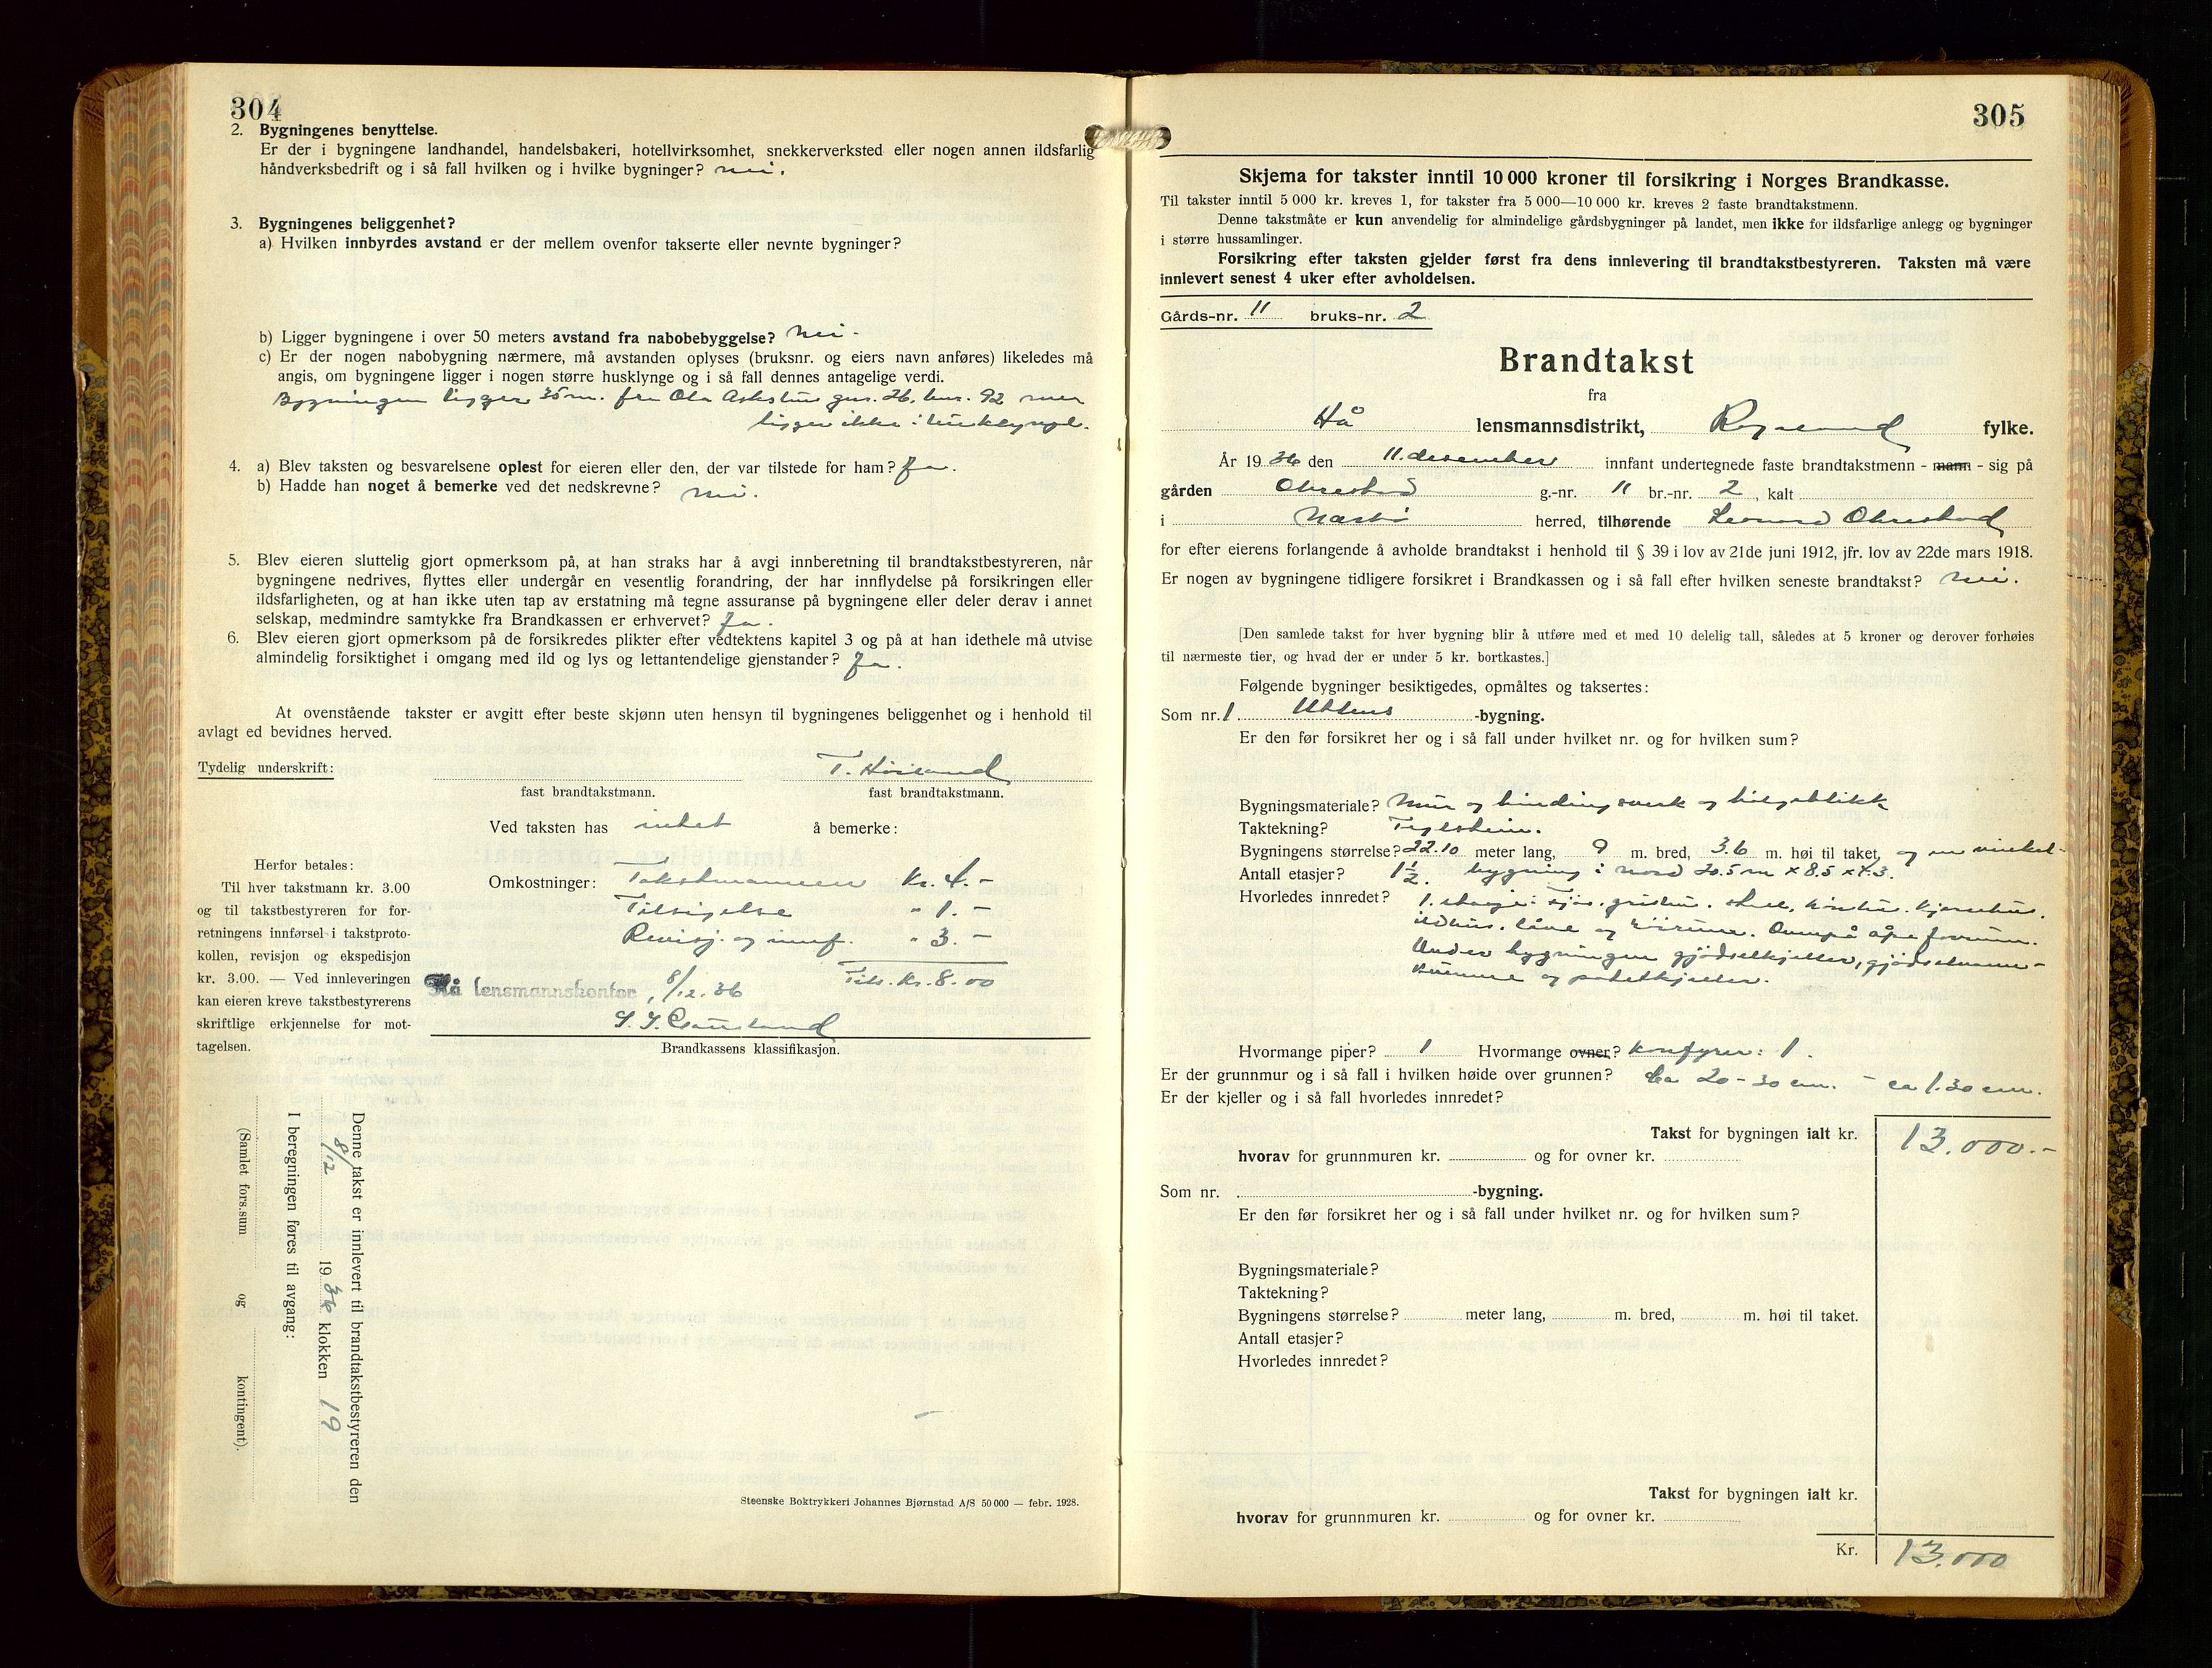 304
2. Bygningenes benyttelse.
Er der i bygningene landhandel, handelsbakeri, hotellvirksomhet, snekkerverksted eller nogen annen ildsfarlig
håndverksbedrift og i så fall hvilken og i hvilke bygninger? nei.
3. Bygningenes beliggenhet?
a) Hvilken innbyrdes avstand er der mellem ovenfor takserte eller nevnte bygninger?
b) Ligger bygningene i over 50 meters avstand fra nabobebyggelse? nei.
c) Er der nogen nabobygning nærmere, må avstanden oplyses (bruksnr. og eiers navn anføres) likeledes må
angis, om bygningene ligger i nogen større husklynge og i så fall dennes antagelige verdi.
Bygningen ligger 35 m. fra Ola gnr. 26, bnr. 92 men
ligger ikke i husklynge.
4. a) Blev taksten og besvarelsene oplest for eieren eller den, der var tilstede for ham? Ja.
b) Hadde han noget å bemerke ved det nedskrevne? nei.
5. Blev eieren sluttelig gjort opmerksom på, at han straks har å avgi innberetning til brandtakstbestyreren, når
bygningene nedrives, flyttes eller undergår en vesentlig forandring, der har innflydelse på forsikringen eller
ildsfarligheten, og at han ikke uten tap av erstatning må tegne assuranse på bygningene eller deler derav i annet
selskap, medmindre samtykke fra Brandkassen er erhvervet? Ja.
6. Blev eieren gjort opmerksom på de forsikredes plikter efter vedtektens kapitel 3 og på at han idethele må utvise
almindelig forsiktighet i omgang med ild og lys og lettantendelige gjenstander? Ja.
At ovenstående takster er avgitt efter beste skjønn uten hensyn til bygningenes beliggenhet og i henhold til
avlagt ed bevidnes herved.
Tydelig underskrift: T. Høiland
fast brandtakstmann. fast brandtakstmann.
Ved taksten has intet å bemerke:
Herfor betales:
Til hver takstmann kr. 3.00
og til takstbestyreren for for-
retningens innførsel i takstproto-
kollen, revisjon og ekspedisjon
kr. 3.00. — Ved innleveringen
kan eieren kreve takstbestyrerens
skriftlige erkjennelse for mot-
tagelsen.
Omkostninger: Takstmannen Kr. 4.-
Tilsigelse " 1.-
Revisj. og innf. " 3.-
Tils. Kr. 8.00
Hå lensmannskontor, 8/12.36
Brandkassens klassifikasjon.
Denne takst er innlevert til brandtakstbestyreren den
8/12 1936 klokken 19
I beregningen føres til avgang:
(Samlet fors.sum og kontingent).
Steenske Boktrykkeri Johannes Bjørnstad A/S 50 000 — febr. 1928.
305
Skjema for takster inntil 10 000 kroner til forsikring i Norges Brandkasse.
Til takster inntil 5 000 kr. kreves 1, for takster fra 5 000—10 000 kr. kreves 2 faste brandtakstmenn.
Denne takstmåte er kun anvendelig for almindelige gårdsbygninger på landet, men ikke for ildsfarlige anlegg og bygninger
i større hussamlinger.
Forsikring efter taksten gjelder først fra dens innlevering til brandtakstbestyreren. Taksten må være
innlevert senest 4 uker efter avholdelsen.
Gårds-nr. 11 bruks-nr. 2
Brandtakst
fra
Hå lensmannsdistrikt, Rogaland fylke.
År 1936 den 11. desember innfant undertegnede faste brandtakstmenn - mann - sig på
gården Obrestad g.-nr. 11 br.-nr. 2, kalt
i Nærbø herred, tilhørende Leonard Obrestad
for efter eierens forlangende å avholde brandtakst i henhold til § 39 i lov av 21de juni 1912, jfr. lov av 22de mars 1918.
Er nogen av bygningene tidligere forsikret i Brandkassen og i så fall efter hvilken seneste brandtakst? nei.
[Den samlede takst for hver bygning blir å utføre med et med 10 delelig tall, således at 5 kroner og derover forhøies
til nærmeste tier, og hvad der er under 5 kr. bortkastes.]
Følgende bygninger besiktigedes, opmåltes og taksertes:
Som nr. 1 Uthus -bygning.
Er den før forsikret her og i så fall under hvilket nr. og for hvilken sum?
Bygningsmateriale? Mur og bindingsverk og bølgeblikk
Taktekning? Teglstein.
Bygningens størrelse? 22.10 meter lang, 9 m. bred, 3.6 m. høi til taket, og en vinkel-
Antall etasjer? 1½. bygning i nord 20.5 m x 8.5 x 4.3.
Hvorledes innredet? 1. etasje: fjøs, grishus, stall, hønsehus, kjørehus,
ildhus, låve og . Ovenpå åpe forrum.
Under bygningen gjødselkjeller, gjødselvann-
kumme og potetkjeller.
Hvormange piper? 1 Hvormange ovner? Komfyrer: 1.
Er der grunnmur og i så fall i hvilken høide over grunnen? ca 20 - 30 cm. - ca 1.30 cm.
Er der kjeller og i så fall hvorledes innredet?
Takst for bygningen ialt kr. 13.000.-
hvorav for grunnmuren kr. og for ovner kr.
Som nr. -bygning.
Er den før forsikret her og i så fall under hvilket nr. og for hvilken sum?
Bygningsmateriale?
Taktekning?
Bygningens størrelse? meter lang, m. bred, m. høi til taket.
Antall etasjer?
Hvorledes innredet?
Takst for bygningen ialt kr.
hvorav for grunnmuren kr. og for ovner kr.
Kr. 13.000